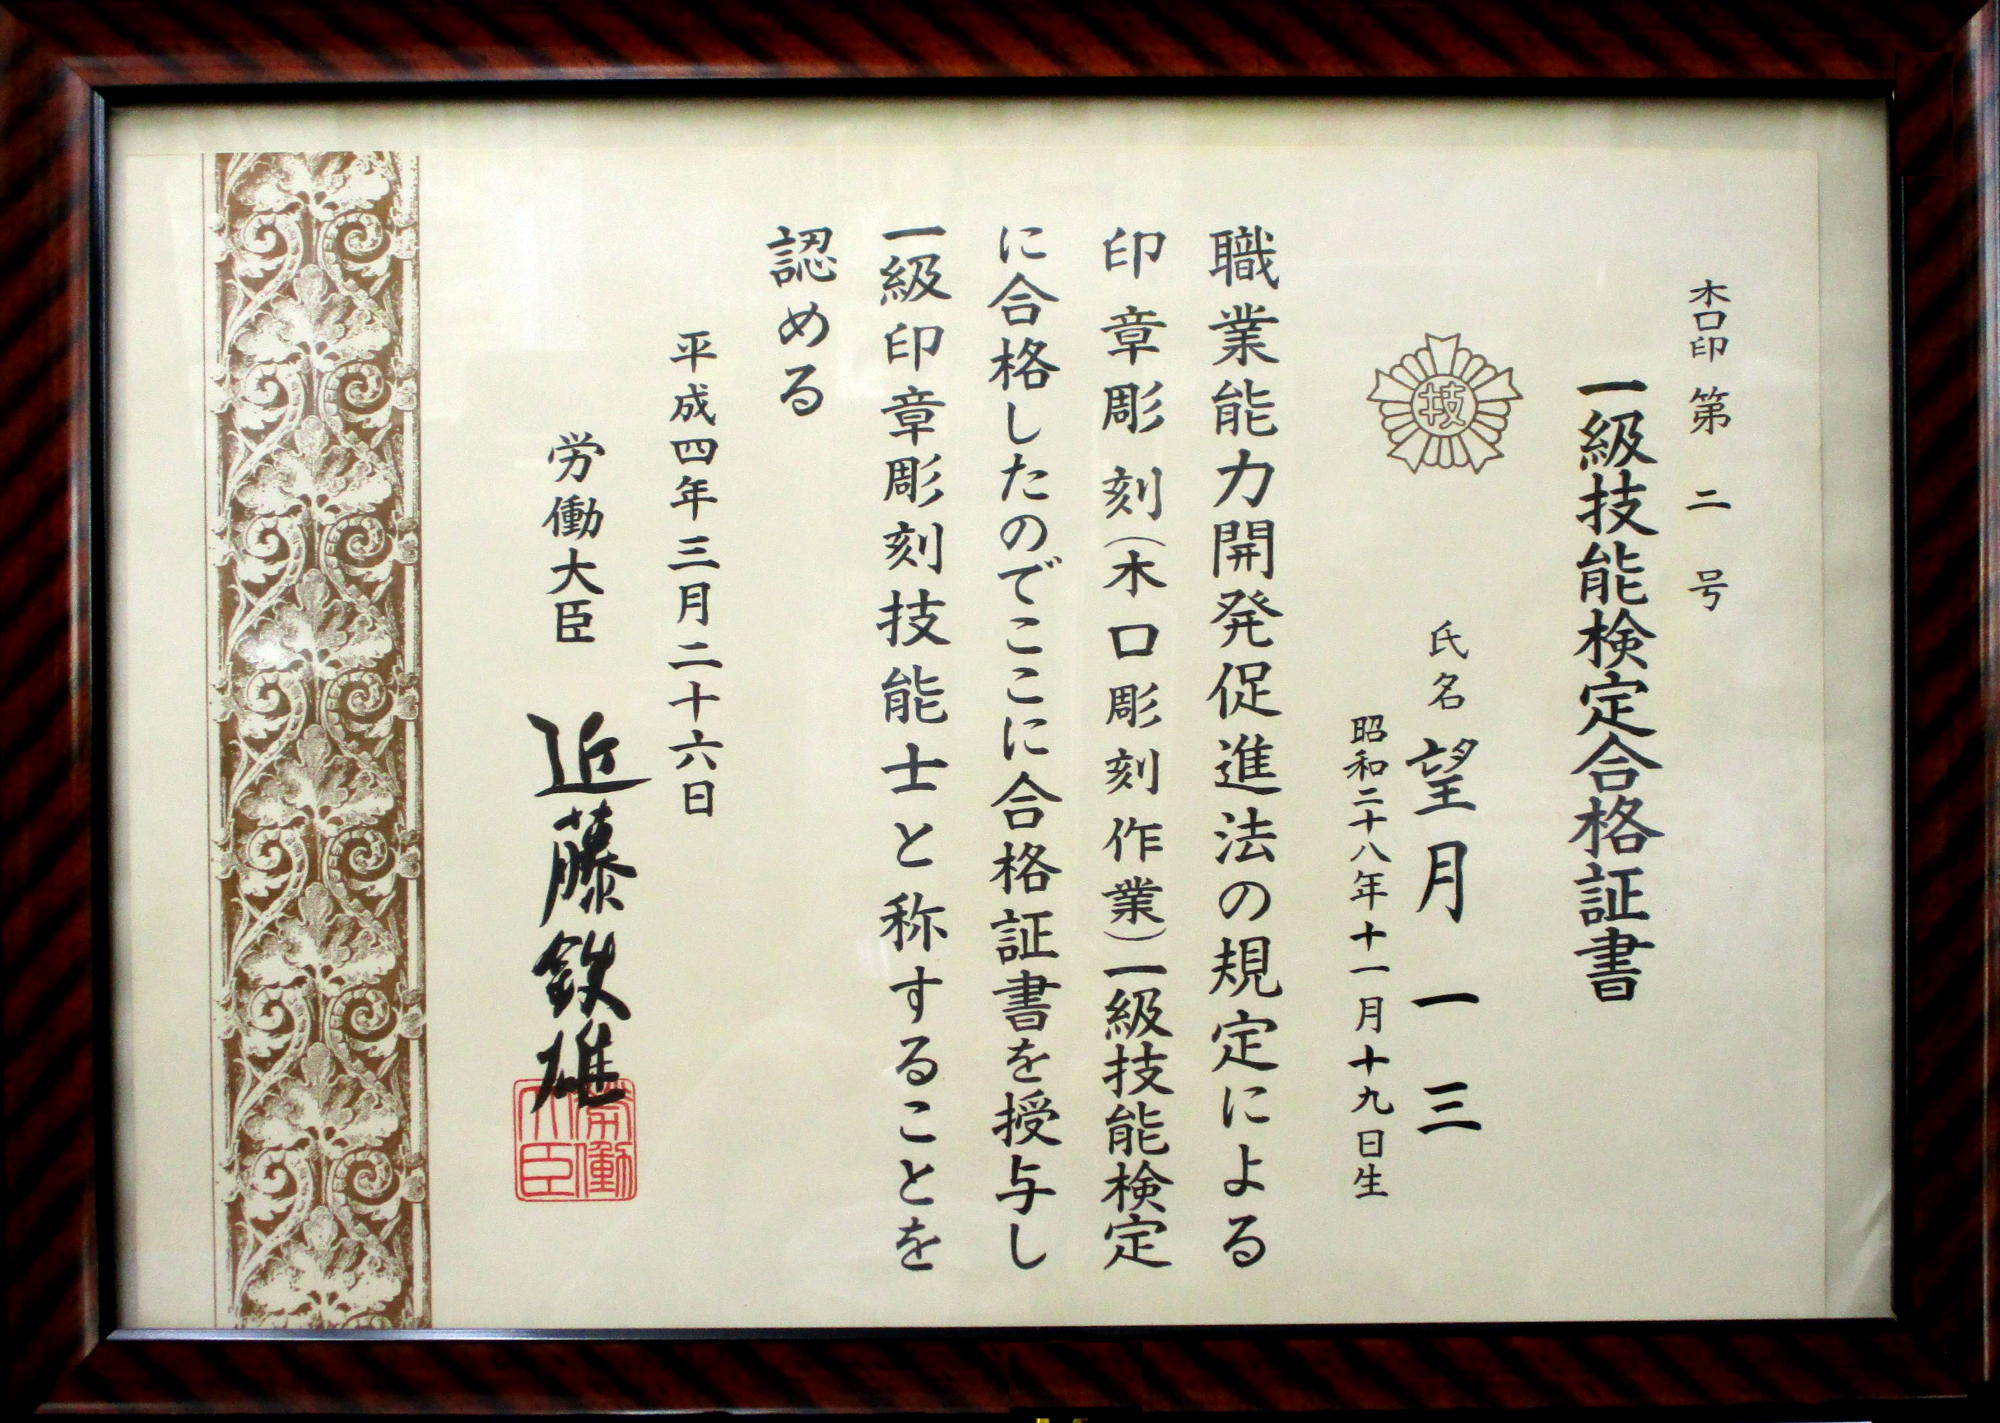 木口印 第二号
一級技能検定合格証書
技
氏名 望月一三
昭和二十八年十一月十九日生
職業能力開発促進法の規定による
印章彫刻(木口彫刻作業)一級技能検定
に合格したのでここに合格証書を授与し
一級印章彫刻技能士と称することを
認める
平成四年三月二十六日
労働大臣 近藤鉄雄
労働
大臣